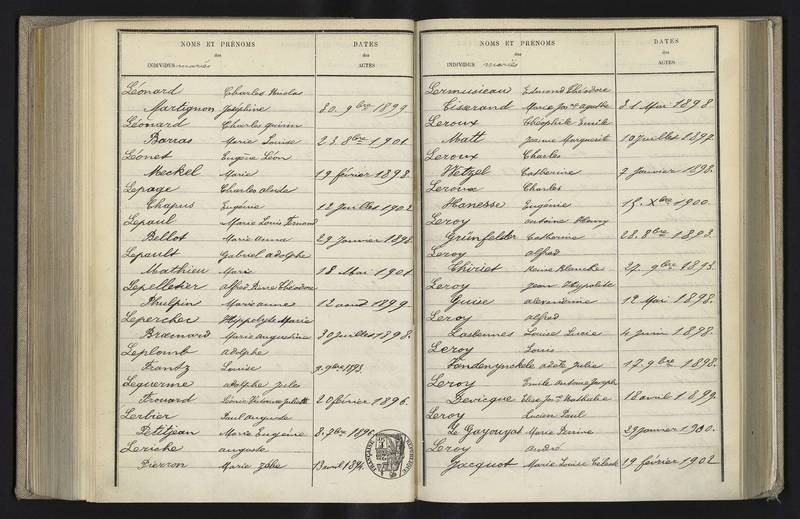 NOMS ET PRÉNOMS
des
INDIVIDUS mariés
DATES
des
ACTES
Léonard Charles Nicolas
Martignon Joséphine 30. 9bre 1899
Léonard Charles quirin
Barras Marie Louise 23. 8bre 1901
Léonet Eugène Léon
Meckel Marie 19 février 1898.
Lepage Charles
Chapus Eugénie 12 Juillet 1902
Lepaul Marie Louis Fernand
Bellot Marie Anna 29 Janvier 1898
Lepault Gabriel adolphe
Mathieu Marie 18 Mai 1901
Lepelletier alfred Théodore
Thulpin Marie anne 12 aout 1899
Lepercher Hippolyte Marie
Marie Augustine 30 Juillet 1898.
Leplomb adolphe
Frantz Louise 9bre 1893.
Lequerme adolphe Jules
Frouard Juliette 20 février 1896.
Lerbier Paul auguste
Petitjean Marie Eugénie 8. 9bre 1896
Leriche auguste
Pierron Marie Zélie 13 avril 1894.
NOMS ET PRÉNOMS
des
INDIVIDUS mariés
DATES
des
ACTES
Lermusieau Edmond Théodore
Tisserand Marie agathe 31 Mai 1898
Leroux Théophile Emile
Matt Jeanne Marguerit 10 Juillet 1897.
Leroux Charles
Wetzel Catherine 2 Janvier 1898.
Leroux Charles
Hanesse Eugénie 15. Xbre 1900.
Leroy antoine Henry
Grünfelder Catherine 28. 8bre 1893.
Leroy alfred
Thiriet Reine Blanche 27. 9bre 1893
Leroy Jean Hyppolite
Guise alexandrine 12 Mai 1898.
Leroy alfred
Louise Lucie 4 Juin 1898.
Leroy Louis
Vandenynckele Julie 17. 9bre 1898.
Leroy Emile Antoine Joseph
Devicque Elise Nathalie 18 avril 1899.
Leroy Lucien Paul
Le Gayouyat Marie 29 Janvier 1900.
Leroy André
Jacquot Marie Louise Céleste 19 février 1902
RÉPUBLIQUE FRANÇAISE